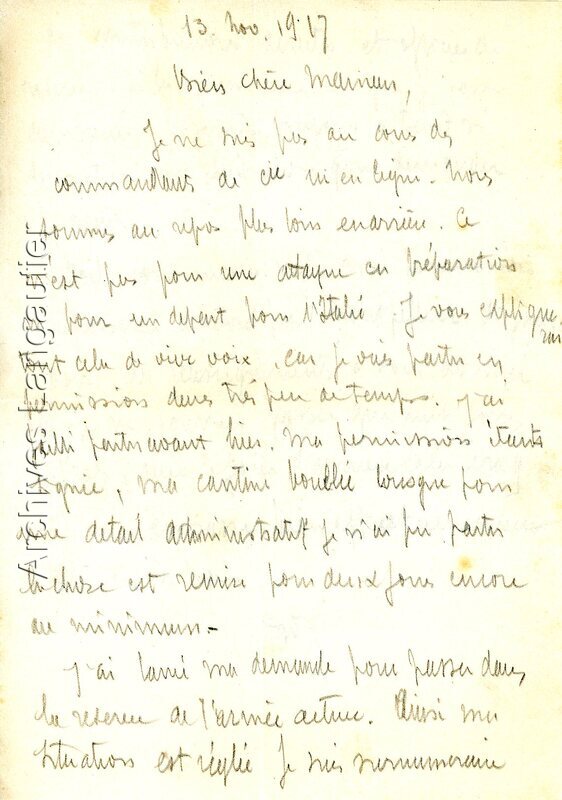 13. Nov. 1917
Bien chère Maman,
Je ne suis pas au cours des
commandants de Cie ni en ligne. Nous
sommes au repos plus loin en arrière. Ce
est pas pour une attaque en préparation
pour un départ pour l'Italie. Je vous explique-
rai
tout cela de vive voix, car je vais partir en
permission dans très peu de temps. J'ai
failli partir avant hier. Ma permission étant
signée, ma cantine bouclée lorsque pour
détail administratif je n'ai pu partir
la chose est remise pour deux jours encore
au minimum.-
J'ai laissé ma demande pour passer dans
la réserve de l'armée active. Ainsi ma
situation est réglée je suis surnuméraire
Archives Lasgoutier